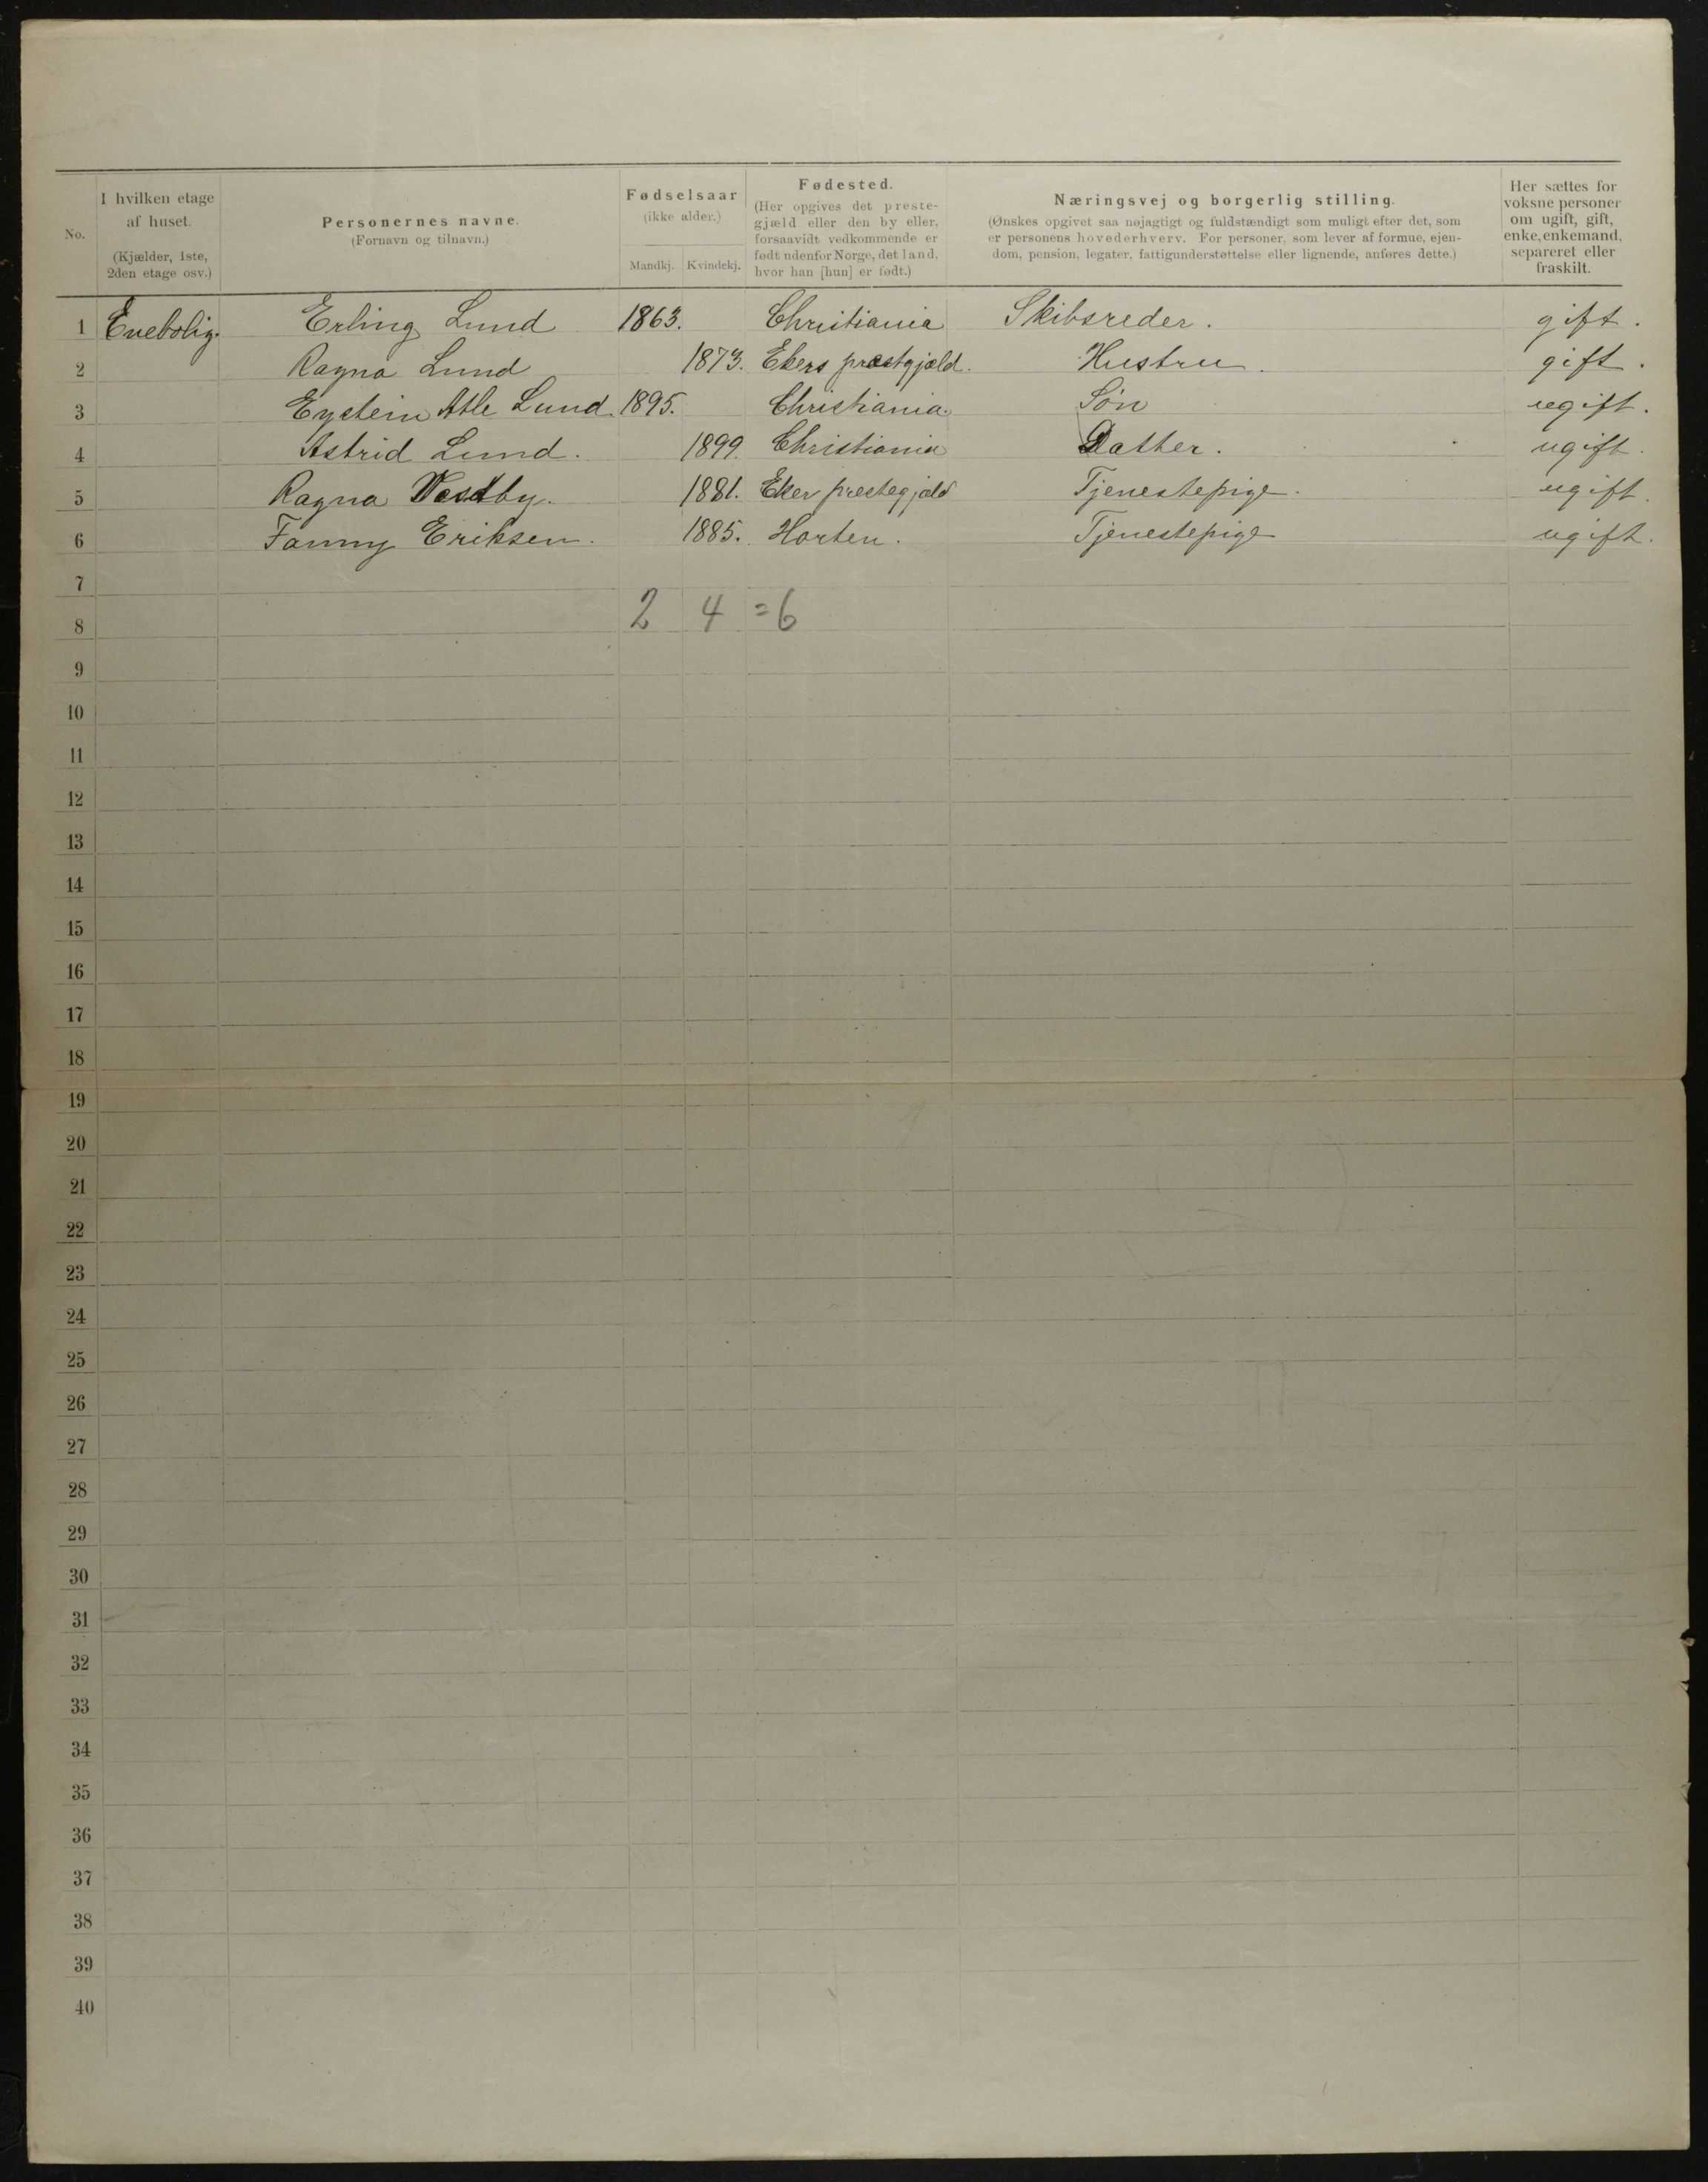 No.
I hvilken etage af huset.
(Kjælder, 1ste, 2den etage osv.)
Personernes navne.
(Fornavn og tilnavn.)
Fødselsaar
(ikke alder.)
Mandkj. Kvindekj.
Fødested.
(Her opgives det preste-
gjæld eller den by eller,
forsaavidt vedkommende er
født udenfor Norge, det land,
hvor han [hun] er født.)
Næringsvej og borgerlig stilling.
(Ønskes opgivet saa nøjagtigt og fuldstændigt som muligt efter det, som
er personens hovederhverv. For personer, som lever af formue, ejen-
dom, pension, legater, fattigunderstøttelse eller lignende, anføres dette.)
Her sættes for
voksne personer
om ugift, gift,
enke, enkemand,
separeret eller
fraskilt.
1 Enebolig. Erling Lund 1863. Christiania Skibsreder. gift.
2 Ragna Lund 1873. Ekers præstgjæld. Hustru. gift.
3 Eystein Atle Lund. 1895. Christiania. Søn ugift.
4 Astrid Lund. 1899. Christiania Datter. ugift.
5 Ragna Vestby. 1881. Eker prestegjæld Tjenestepige. ugift.
6 Fanny Eriksen. 1885. Horten. Tjenestepige ugift.
7
8 2 4 = 6
9
10
11
12
13
14
15
16
17
18
19
20
21
22
23
24
25
26
27
28
29
30
31
32
33
34
35
36
37
38
39
40